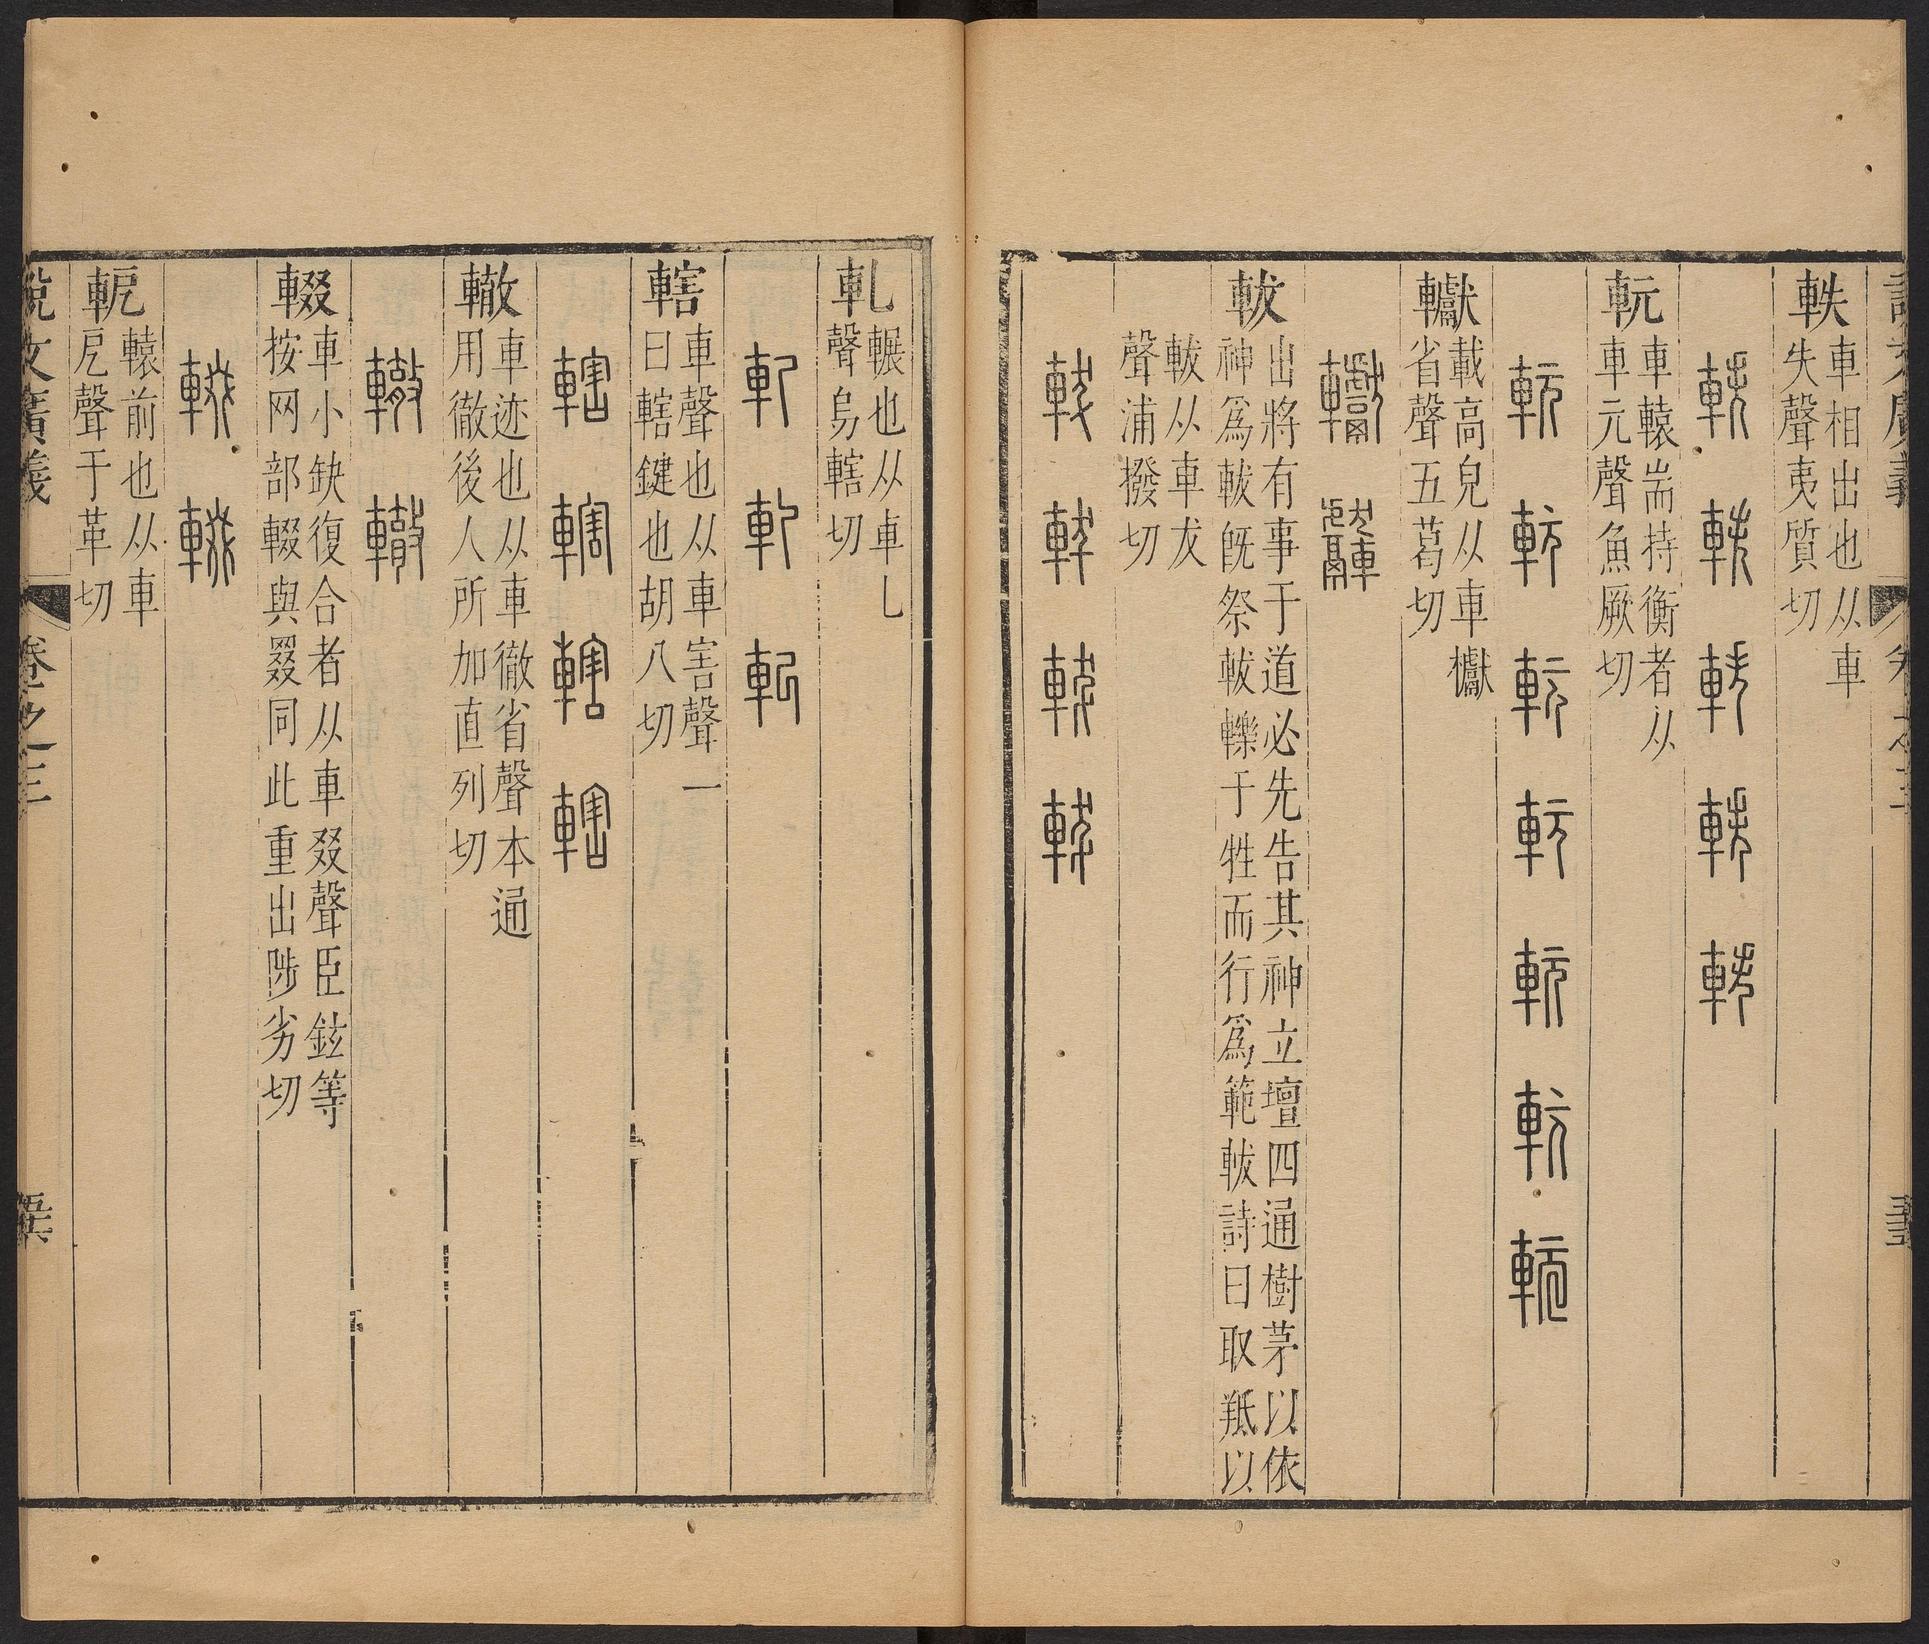 軼
車相出也从車
失聲夷質切
軼 軼 軼 軼 軼
軏
車轅耑持衡者从
車元聲魚厥切
軏 軏 軏 軏 軏 軏 軏
轥
載高皃从車櫢
省聲五葛切
軷
出將有事于道必先告其神立壇四通樹茅以依
神爲軷旣祭軷轢于牲而行爲範軷詩曰取羝以
軷从車犮
聲浦撥切
軷 軷 軷 軷
軋
輾也从車乚
聲烏轄切
軋 軋 軋
轄
車聲也从車害聲一
曰轄鍵也胡八切
轄 轄 轄 轄
轍
車迹也从車徹省聲本通
用徹後人所加直列切
轍 轍
輟
車小缺復合者从車叕聲臣鉉等
按网部輟與罬同此重出陟劣切
輟 輟
軶
轅前也从車
戹聲于革切
說文廣義 卷之三